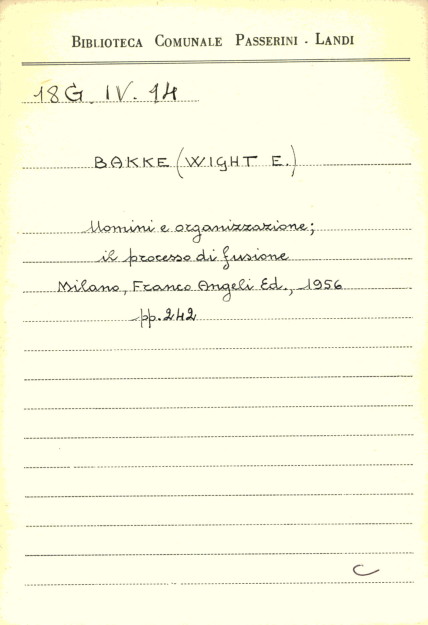 BIBLIOTECA COMUNALE PASSERINI - LANDI
18G. IV. 14
BAKKE (WIGHT E.)
Uomini e organizzazione;
il processo di fusione
Milano, Franco Angeli Ed., 1956
pp. 242
C